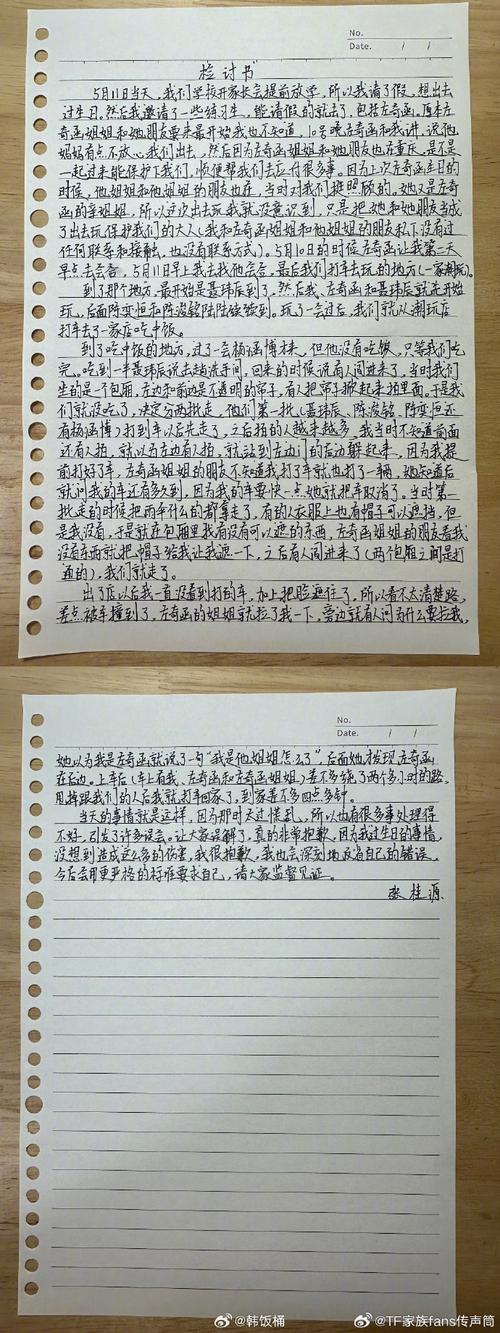 No.
Date. / /
检讨书
5月11日当天，我们学校开家长会提前放学，所以我请了假，想出去
过生日。然后我邀请了一些练习生，能请假的就去了，包括左奇函。原本左
奇函姐姐和她朋友要来最开始我也不知道，10号晚左奇函和我讲，说他
妈妈有点不放心我们出去，然后因为左奇函姐姐和她朋友也在重庆，是不是
一起过来能保护下我们，顺便帮我们去应付很多事，因为上次左奇函生日的
时候，他姐姐和他姐姐的朋友也在，当时对我们挺照顾的，她又是左奇
函的亲姐姐，所以这次出去玩我就没意识到，只是把她和她朋友当成
了出去玩保护我们的大人（我和左奇函姐姐和他姐姐的朋友私下没有过
任何联系和接触，也没有联系方式）。5月10日的时候左奇函让我第二天
早点去会合，5月11日早上我去找他会合，最后我们打车去玩的地方（一家潮玩）。
到了那个地方，最开始是聂玮辰到了，然后我、左奇函和聂玮辰就先开始
玩，后面陈奕恒和陈浚铭陆陆续续到。玩了一会过后，我们就从潮玩店
打车去了一家店吃中饭。
到了吃中饭的地方，过了一会杨涵博才来，但他没有吃饭，只等我们吃
完。吃到一半聂玮辰说去趟洗手间，回来的时候说有人闯进来了，当时我们
坐的是个包厢，左边和前边是不透明的帘子，有人把帘子掀起来拍里面。于是我
们就没吃了，决定分两批走，他们第一批（聂玮辰、陈浚铭、陈奕恒还
有杨涵博）打到车以后先走了，之后拍的人越来越多，我当时不知道前面
还有人拍，就以为左边有人拍，就站到左边门的后边躲起来，因为我提
前打好了车，左奇函姐姐的朋友不知道我打了车就也打了一辆，她知道后
就问我的车还有多久到，因为我的车要快一点她就把车取消了，当时第一
批走的时候把雨伞什么的都拿走了，有的人衣服上也有帽子可以遮挡，但
是我没有，于是就在包厢里找有没有可以遮的东西，左奇函姐姐的朋友看我
没有东西就把帽子给我让我遮一下，之后有人闯进来了（两个包厢之间是打
通的），我们就走了。
出了店以后我一直没看到打的车，加上把脸遮住了，所以看不太清楚路，
差点被车撞到了，左奇函的姐姐就拉了我一下，旁边就有人问为什么要拉我，
No.
Date. / /
她以为我是左奇函就说了一句“我是他姐姐怎么了”，后面她才发现左奇函
在后边。上车后（车上有我、左奇函和左奇函姐姐）差不多绕了两个多小时的路，
甩掉跟我们的人后我就打车回家了，到家差不多四点多钟。
当天的事情就是这样，因为那时太慌乱，所以也有很多事处理得
不好，引发了许多误会。让大家误解了，真的非常抱歉，因为我过生日的事情，
没想到造成这么多的伤害，我很抱歉，我也会深刻地反省自己的错误，
今后会用更严格的标准要求自己，请大家监督见证。
张桂源
@韩饭桶
@TF家族fans传声筒